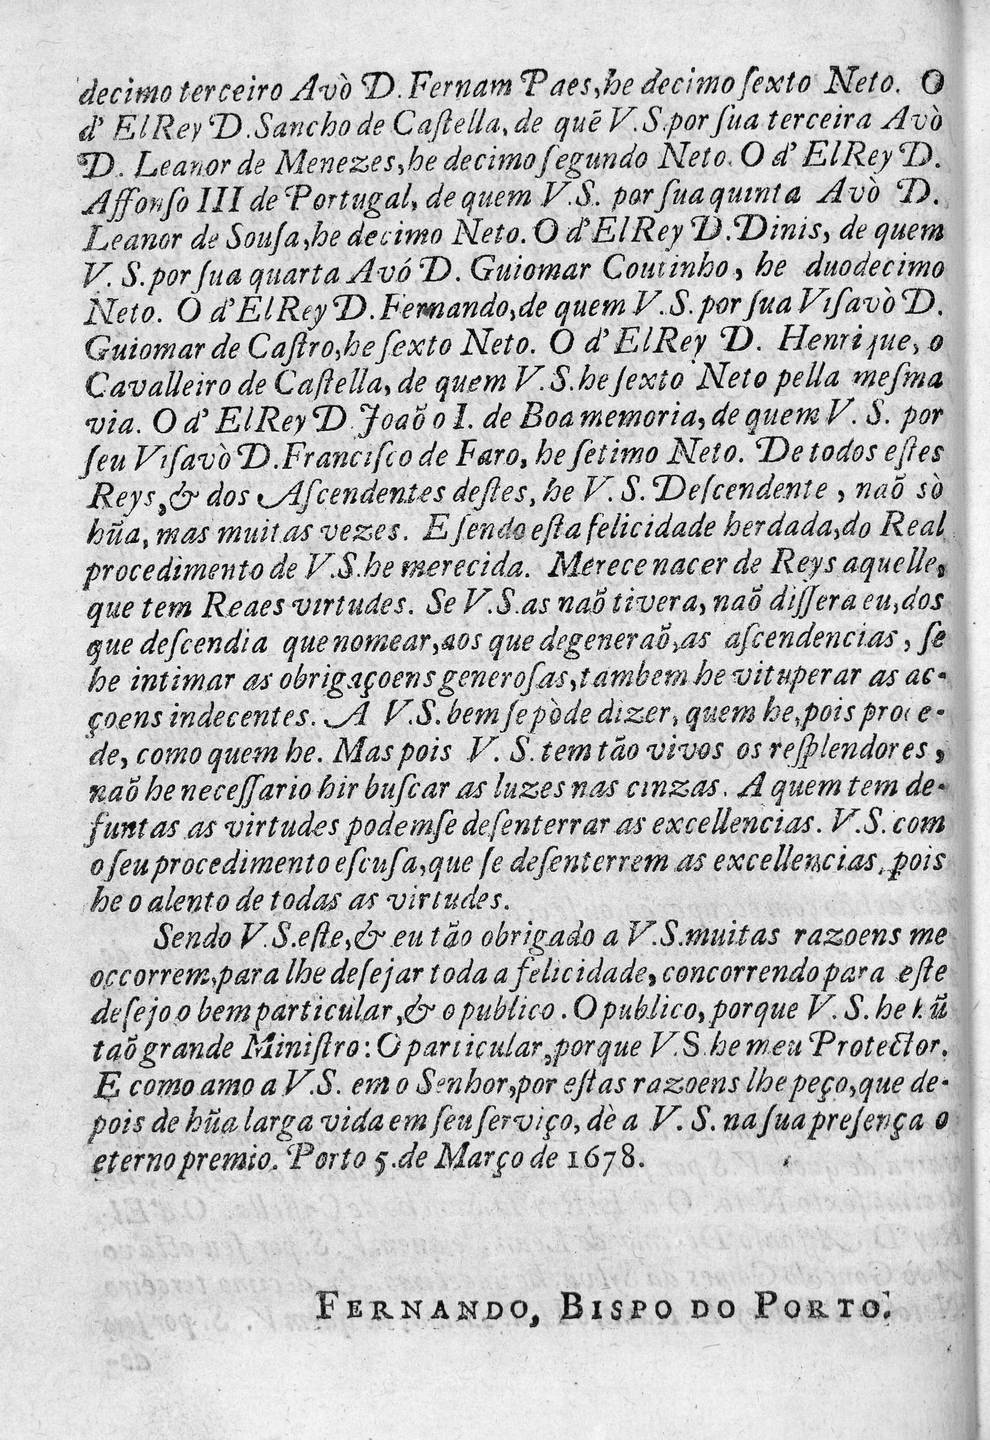 decimo terceiro Avò D. Fernam Paes, he decimo ſexto Neto. O
d' ElRey D. Sancho de Caſtella, de quẽ V.S. por ſua terceira Avò
D. Leanor de Menezes, he decimo ſegundo Neto. O d' ElRey D.
Affonſo III de Portugal, de quem V.S. por ſua quinta Avò D.
Leanor de Souſa, he decimo Neto. O d' ElRey D. Dinis, de quem
V. S. por ſua quarta Avó D. Guiomar Coutinho, he duodecimo
Neto. O d' ElRey D. Fernando, de quem V.S. por ſua Viſavò D.
Guiomar de Caſtro, he ſexto Neto. O d' ElRey D. Henrique, o
Cavalleiro de Caſtella, de quem V.S. he ſexto Neto pella meſma
via. O d' ElRey D. Joaõ o I. de Boa memoria, de quem V. S. por
ſeu Viſavò D. Franciſco de Faro, he ſetimo Neto. De todos eſtes
Reys, & dos Aſcendentes deſtes, he V. S. Deſcendente, naõ sò
hũa, mas muitas vezes. E ſendo eſta felicidade herdada, do Real
procedimento de V.S. he merecida. Merece nacer de Reys aquelle,
que tem Reaes virtudes. Se V.S. as naõ tivera, naõ diſſera eu, dos
que deſcendia que nomear, aos que degeneraõ, as aſcendencias, ſe
he intimar as obrigaçoens generoſas, tambem he vituperar as ac-
çoens indecentes. A V.S. bem ſe pòde dizer, quem he, pois proce-
de, como quem he. Mas pois V. S. tem tão vivos os reſplendores,
naõ he neceſſario hir buſcar as luzes nas cinzas. A quem tem de-
funtas as virtudes podemſe deſenterrar as excellencias. V.S. com
o ſeu procedimento eſcuſa, que ſe deſenterrem as excellencias, pois
he o alento de todas as virtudes.
Sendo V.S. eſte, & eu tão obrigado a V.S. muitas razoens me
occorrem, para lhe deſejar toda a felicidade, concorrendo para eſte
deſejo o bem particular, & o publico. O publico, porque V. S. he hũ
taõ grande Miniſtro: O particular, porque V.S. he meu Protector.
E como amo a V.S. em o Senhor, por eſtas razoens lhe peço, que de-
pois de hũa larga vida em ſeu ſerviço, dè a V. S. na ſua preſença o
eterno premio. Porto 5. de Março de 1678.
FERNANDO, BISPO DO PORTO.